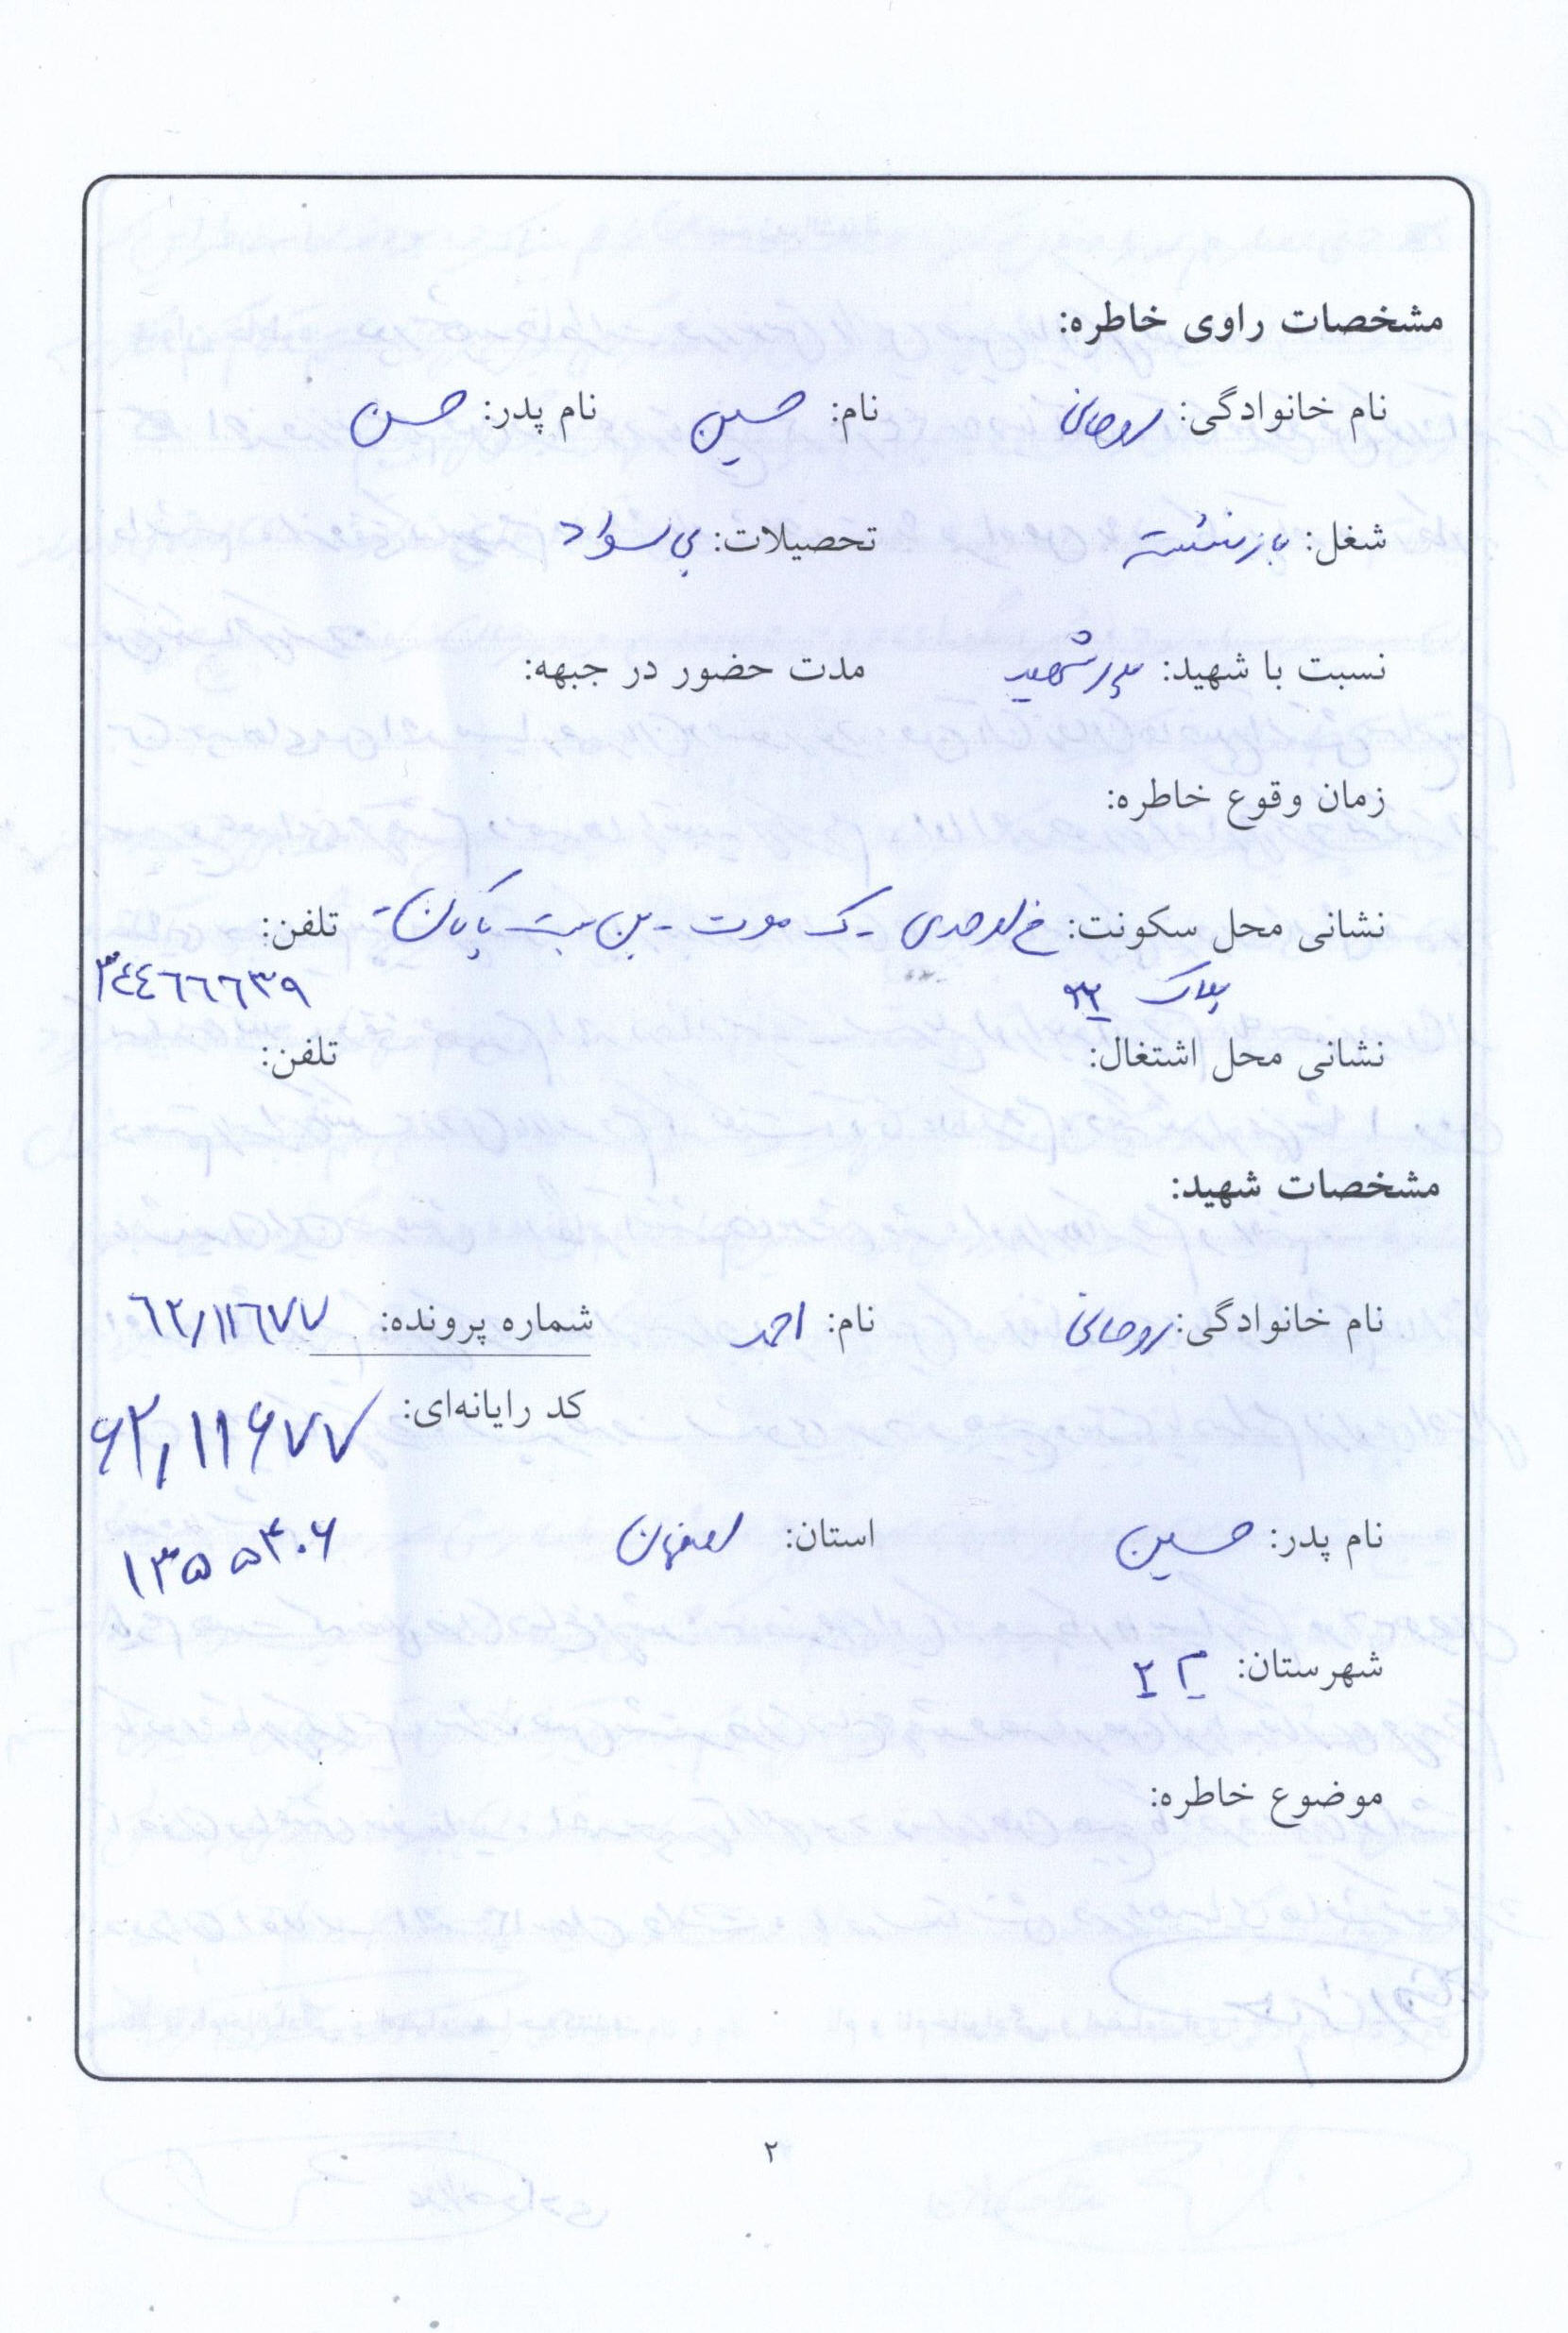 مشخصات راوی خاطره:
نام خانوادگی: روحانی نام: حسین نام پدر: حسن
شغل: بازنشسته تحصیلات: بی سواد
نسبت با شهید: پدر شهید مدت حضور در جبهه:
زمان وقوع خاطره:
نشانی محل سکونت: خ اوحدی - ک - بن بست تلفن:
پلاک ۲۲ ۳٤٤٦٦٦۳۹
نشانی محل اشتغال: تلفن:
مشخصات شهید:
نام خانوادگی: روحانی نام: احمد شماره پرونده: ٦۲/۱۱٦۷۷
کد رایانه‌ای: ۶۲/۱۱۶۷۷
نام پدر: حسین استان: اصفهان ۱۳۵۵۳۰۶
شهرستان: م ۲
موضوع خاطره:
۲